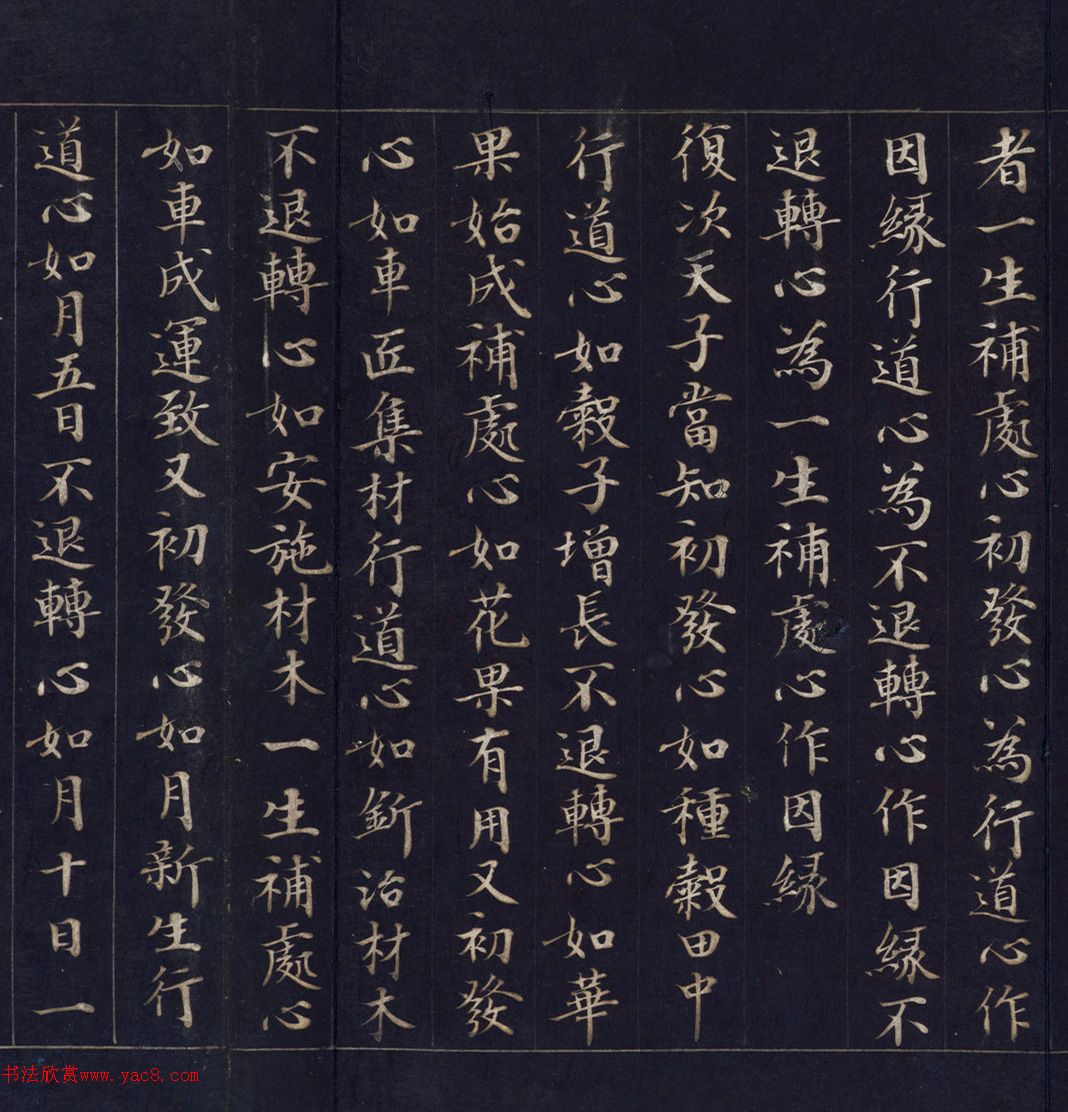 者一生補處心初發心為行道心作
因緣行道心為不退轉心作因緣不
退轉心為一生補處心作因緣
復次天子當知初發心如種穀田中
行道心如穀子增長不退轉心如華
果始成補處心如花果有用又初發
心如車匠集材行道心如斫治材木
不退轉心如安施材木一生補處心
如車成運致又初發心如月新生行
道心如月五日不退轉心如月十日一
书法欣赏www.yac8.com